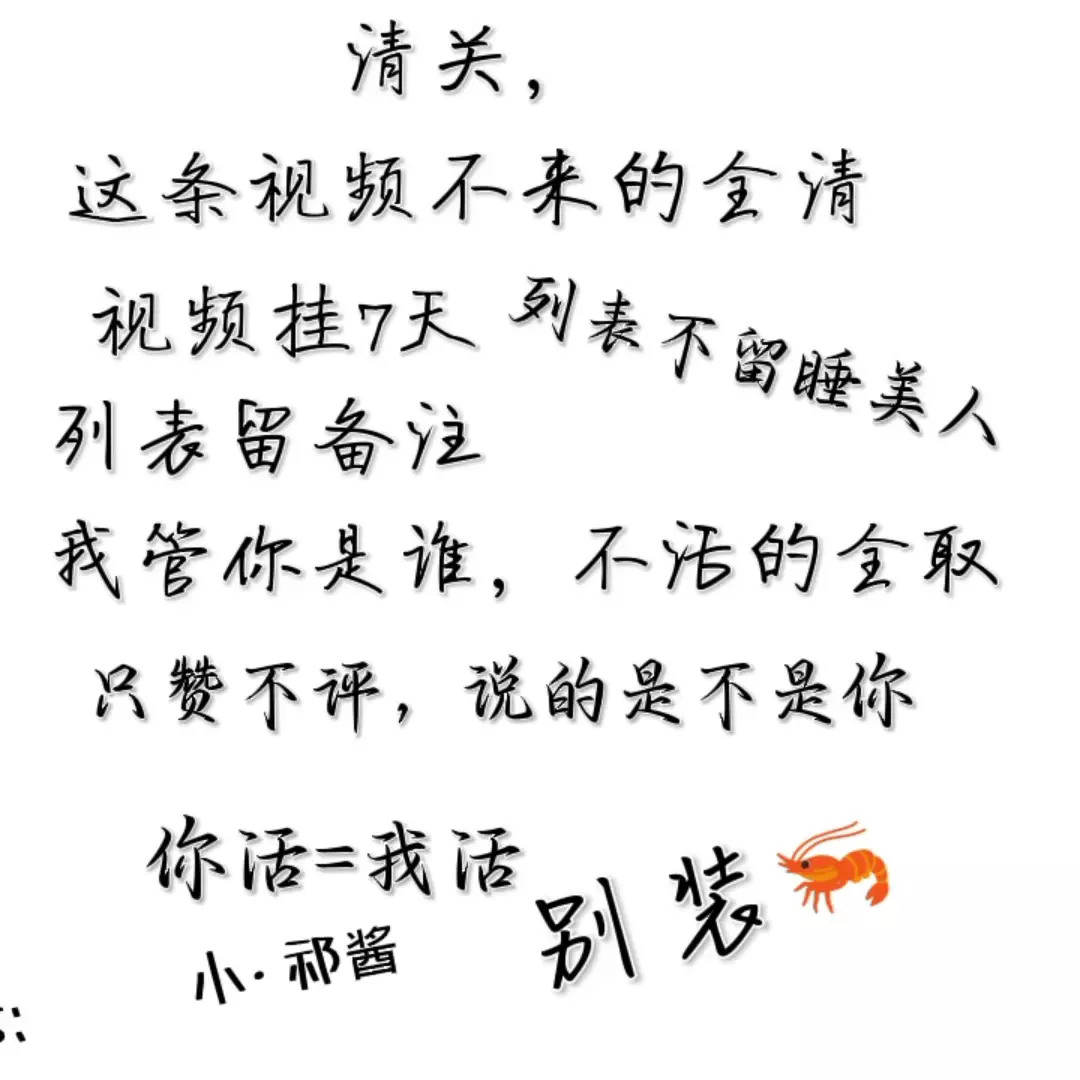 清关，
这条视频不来的全清
视频挂7天
列表不留睡美人
列表留备注
我管你是谁，不活的全取
只赞不评，说的是不是你
你活=我活
别装
小·祁酱